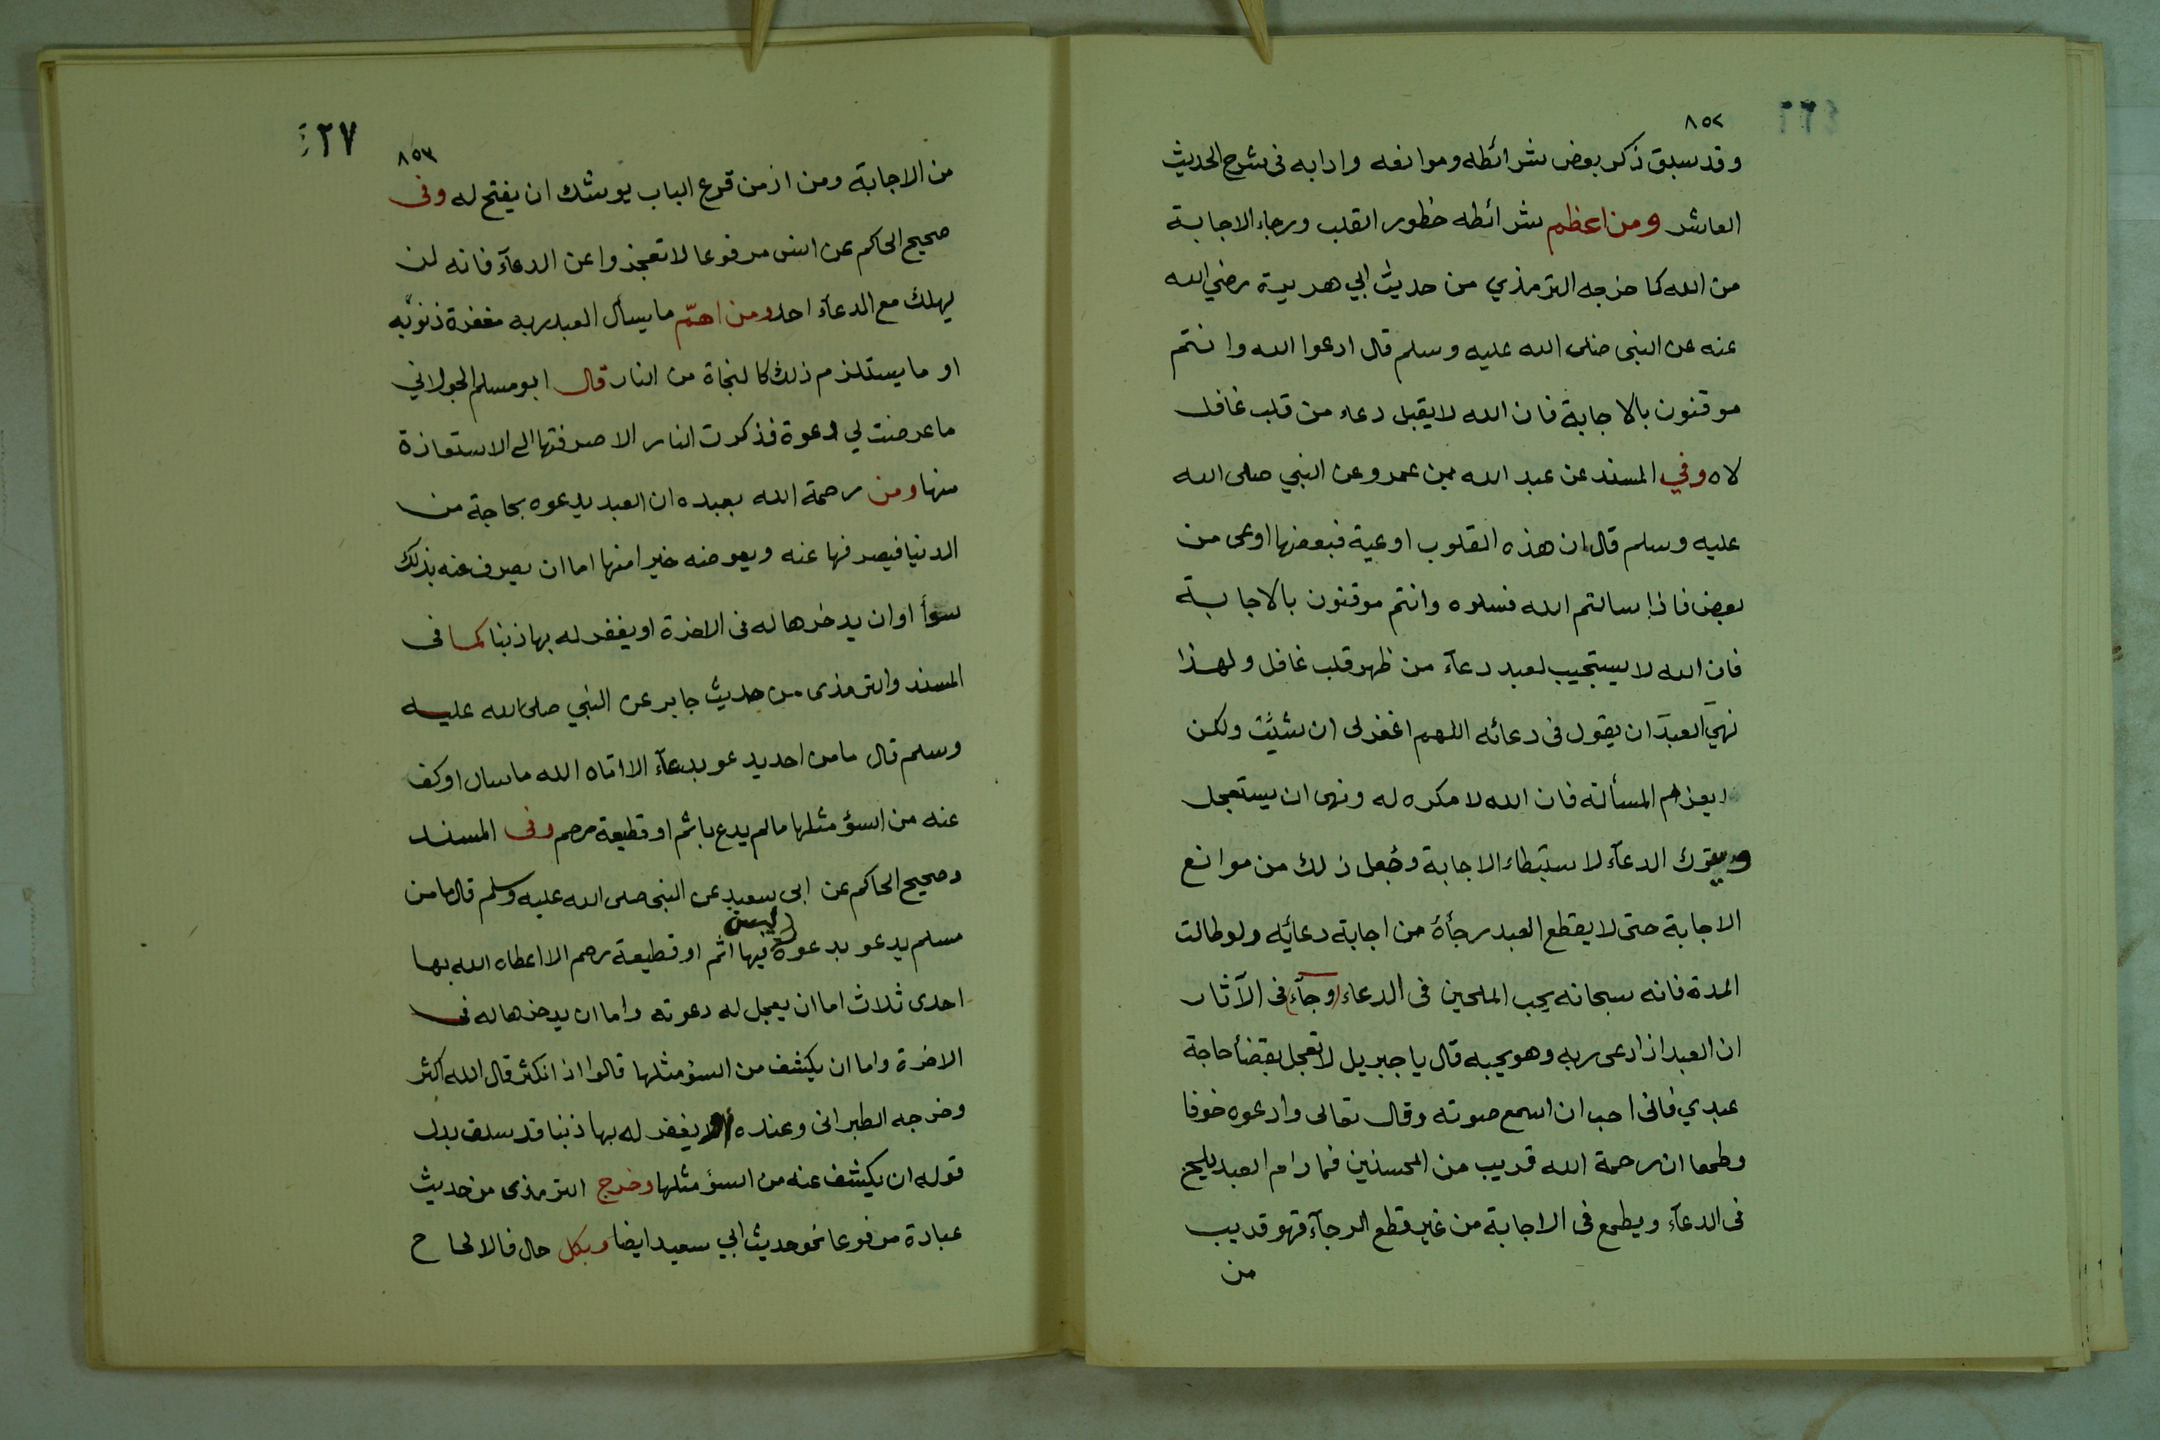 ٨٥٢
وقد سبق ذكر بعض شرائطه وموانعه وادابه فى شرح الحديث
العاشر ومن اعظم شرائطه حظور القلب ورجاء الاجابة
من الله كما خرجه الترمذي من حديث ابي هريرة رضي الله
عنه عن النبى صلى الله عليه وسلم قال ادعوا الله وانتم
موقنون بالاجابة فان الله لا يقبل دعاء من قلب غافل
لاه وفي المسند عن عبد الله بن عمرو عن النبي صلى الله
عليه وسلم قال ان هذه القلوب اوعية فبعضها اوعى من
بعض فاذا سالتم الله فسلوه وانتم موقنون بالاجابة
فان الله لا يستجيب لعبد دعآء من ظهر قلب غافل ولهذا
نهي العبد ان يقول فى دعائه اللهم اغفر لى ان شئت ولكن
ليعزم المسألة فان الله لا مكره له ونهى ان يستعجل
ويترك الدعآء لاستبطاء الاجابة وجعل ذلك من موانع
الاجابة حتى لا يقطع العبد رجأه من اجابة دعائه ولو طالت
المدة فانه سبحانه يحب الملحين فى الدعاء وجآء فى الآثار
ان العبد اذا دعى ربه وهو يحبه قال يا جبريل لا تعجل بقضأ حاجة
عبدي فانى احب ان اسمع صوته وقال تعالى وادعوه خوفا
وطمعا ان رحمة الله قريب من المحسنين فما دام العبد يلح
فى الدعآء ويطمع فى الاجابة من غير قطع الرجآء فهو قريب
من
٤٢٧
٨٥٣
من الاجابة ومن ادمن قرع الباب يوشك ان يفتح له وفى
صحيح الحاكم عن انس مرفوعا لا تعجزوا عن الدعآء فانه لن
يهلك مع الدعآء احد ومن اهمّ ما يسأل العبد ربه مغفرة ذنوبه
او ما يستلزم ذلك كالنجاة من النار قال ابو مسلم الجولاني
ما عرضت لي دعوة فذكرت النار الا صرفتها الى الاستعاذة
منها ومن رحمة الله بعبده ان العبد يدعوه بحاجة من
الدنيا فيصرفها عنه ويعوضه خيرا منها اما ان يصرف عنه بذلك
سوأ او ان يدخرها له فى الاخرة او يغفر له بها ذنبا كما فى
المسند والترمذى من حديث جابر عن النبي صلى الله عليه
وسلم قال ما من احد يدعو بدعآء الا اتاه الله ما سال او كف
عنه من السؤ مثلها ما لم يدع باثم او قطيعة رحم وفى المسند
وصحيح الحاكم عن ابى سعيد عن النبى صلى الله عليه وسلم قال ما من
مسلم يدعو بدعوة ليس فيها اثم او قطيعة رحم الا اعطاه الله بها
احدى ثلاث اما ان يعجل له دعوته واما ان يدخرها له فى
الاخرة واما ان يكشف من السؤ مثلها قالوا اذا نكثر قال الله اكثر
وخرجه الطبرانى وعنده او يغفر له بها ذنبا قد سلف بدل
قوله ان يكشف عنه من السؤ مثلها وخرج الترمذى من حديث
عبادة مرفوعا نحو حديث ابي سعيد ايضا وبكل حال فالالحاح